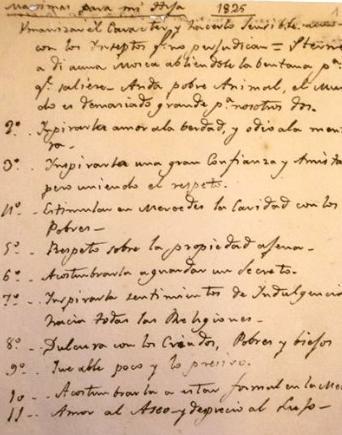 Maximas para mi Hija 1825
Umanizar el Caracter y hacerlo sensible aun
con los Insectos q.e no perjudican = Sterne
a di a una Mosca abliendole la bentana p.a
q.e saliese - Anda pobre Animal, el Mun
do es demaciado grande p.a nosotros dos.
2º - Inspirarla amor a la berdad, y odio a la men
ra -
3º - Inspirarla una gran Confianza y Amista
pero uniendo el respeto.
4º - Estimular en Mercedes la Caridad con los
Pobres -
5º - Respeto sobre la propiedad ajena -
6º - Acostumbrarla a guardar un Secreto -
7º - Inspirarla sentimientos de Indulgencia
hacia todas las Religiones -
8º - Dulzura con los Criados, Pobres y biejos
9º - Que able poco y lo preciso.
10 - Acostumbrarla a estar formal en la Me
11 - Amor al Aseo y desprecio al Lujo -